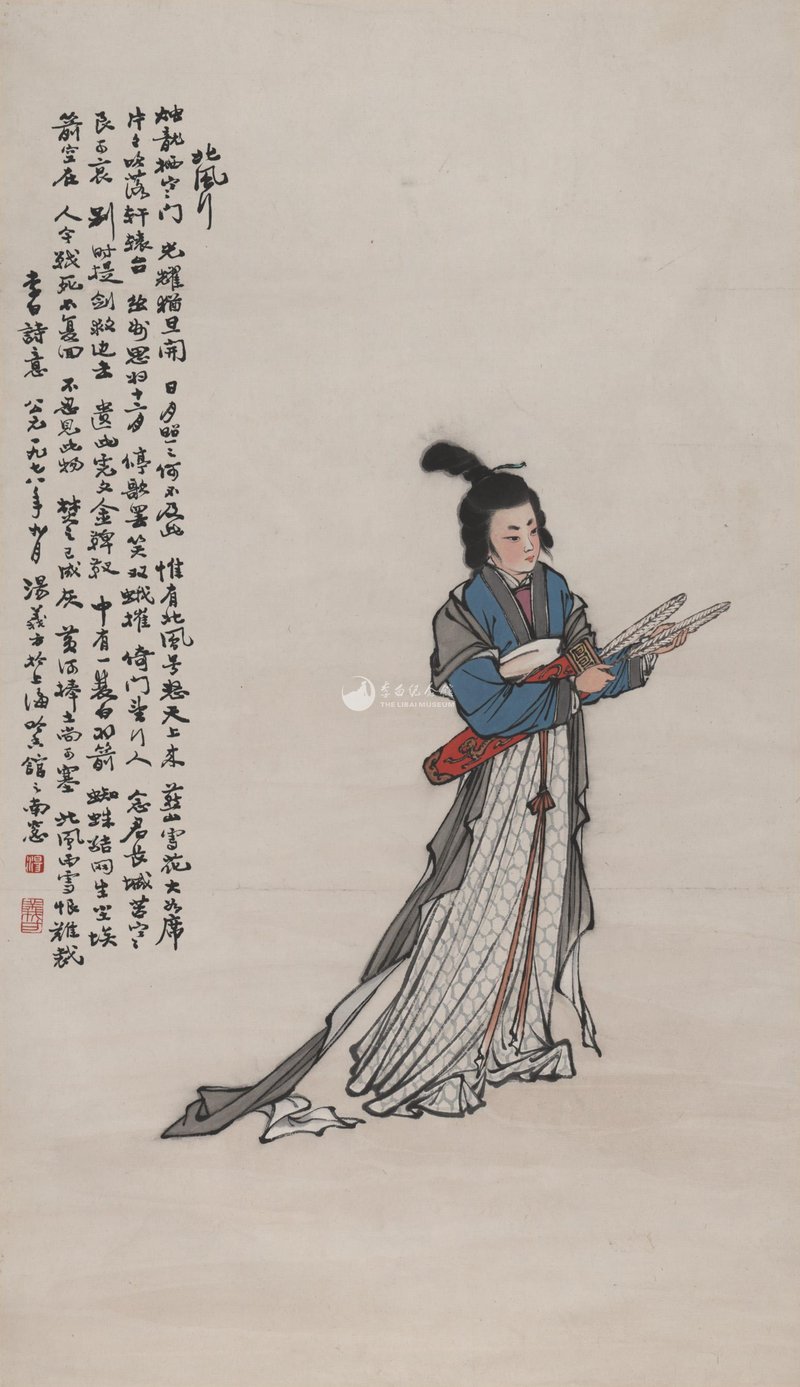 北風行
烛龍栖寒门 光耀猶旦開 日月照之何不及此 惟有北風号怒天上来 燕山雪花大如席
片々吹落軒辕台 幽州思妇十二月 停歌罢笑双蛾摧 倚门望行人 念君长城苦寒
良可哀 别时提剑救边去 遗此虎文金鞞靫 中有一双白羽箭 蜘蛛结网生尘埃
箭空在 人今戰死不复回 不忍见此物 焚之已成灰 黄河捧土尚可塞 北風雨雪恨难裁
李白詩意 公元一九七八年九月 湯義方於上海吟香館之南窓
湯
義方
李白纪念馆
THE LIBAI MUSEUM